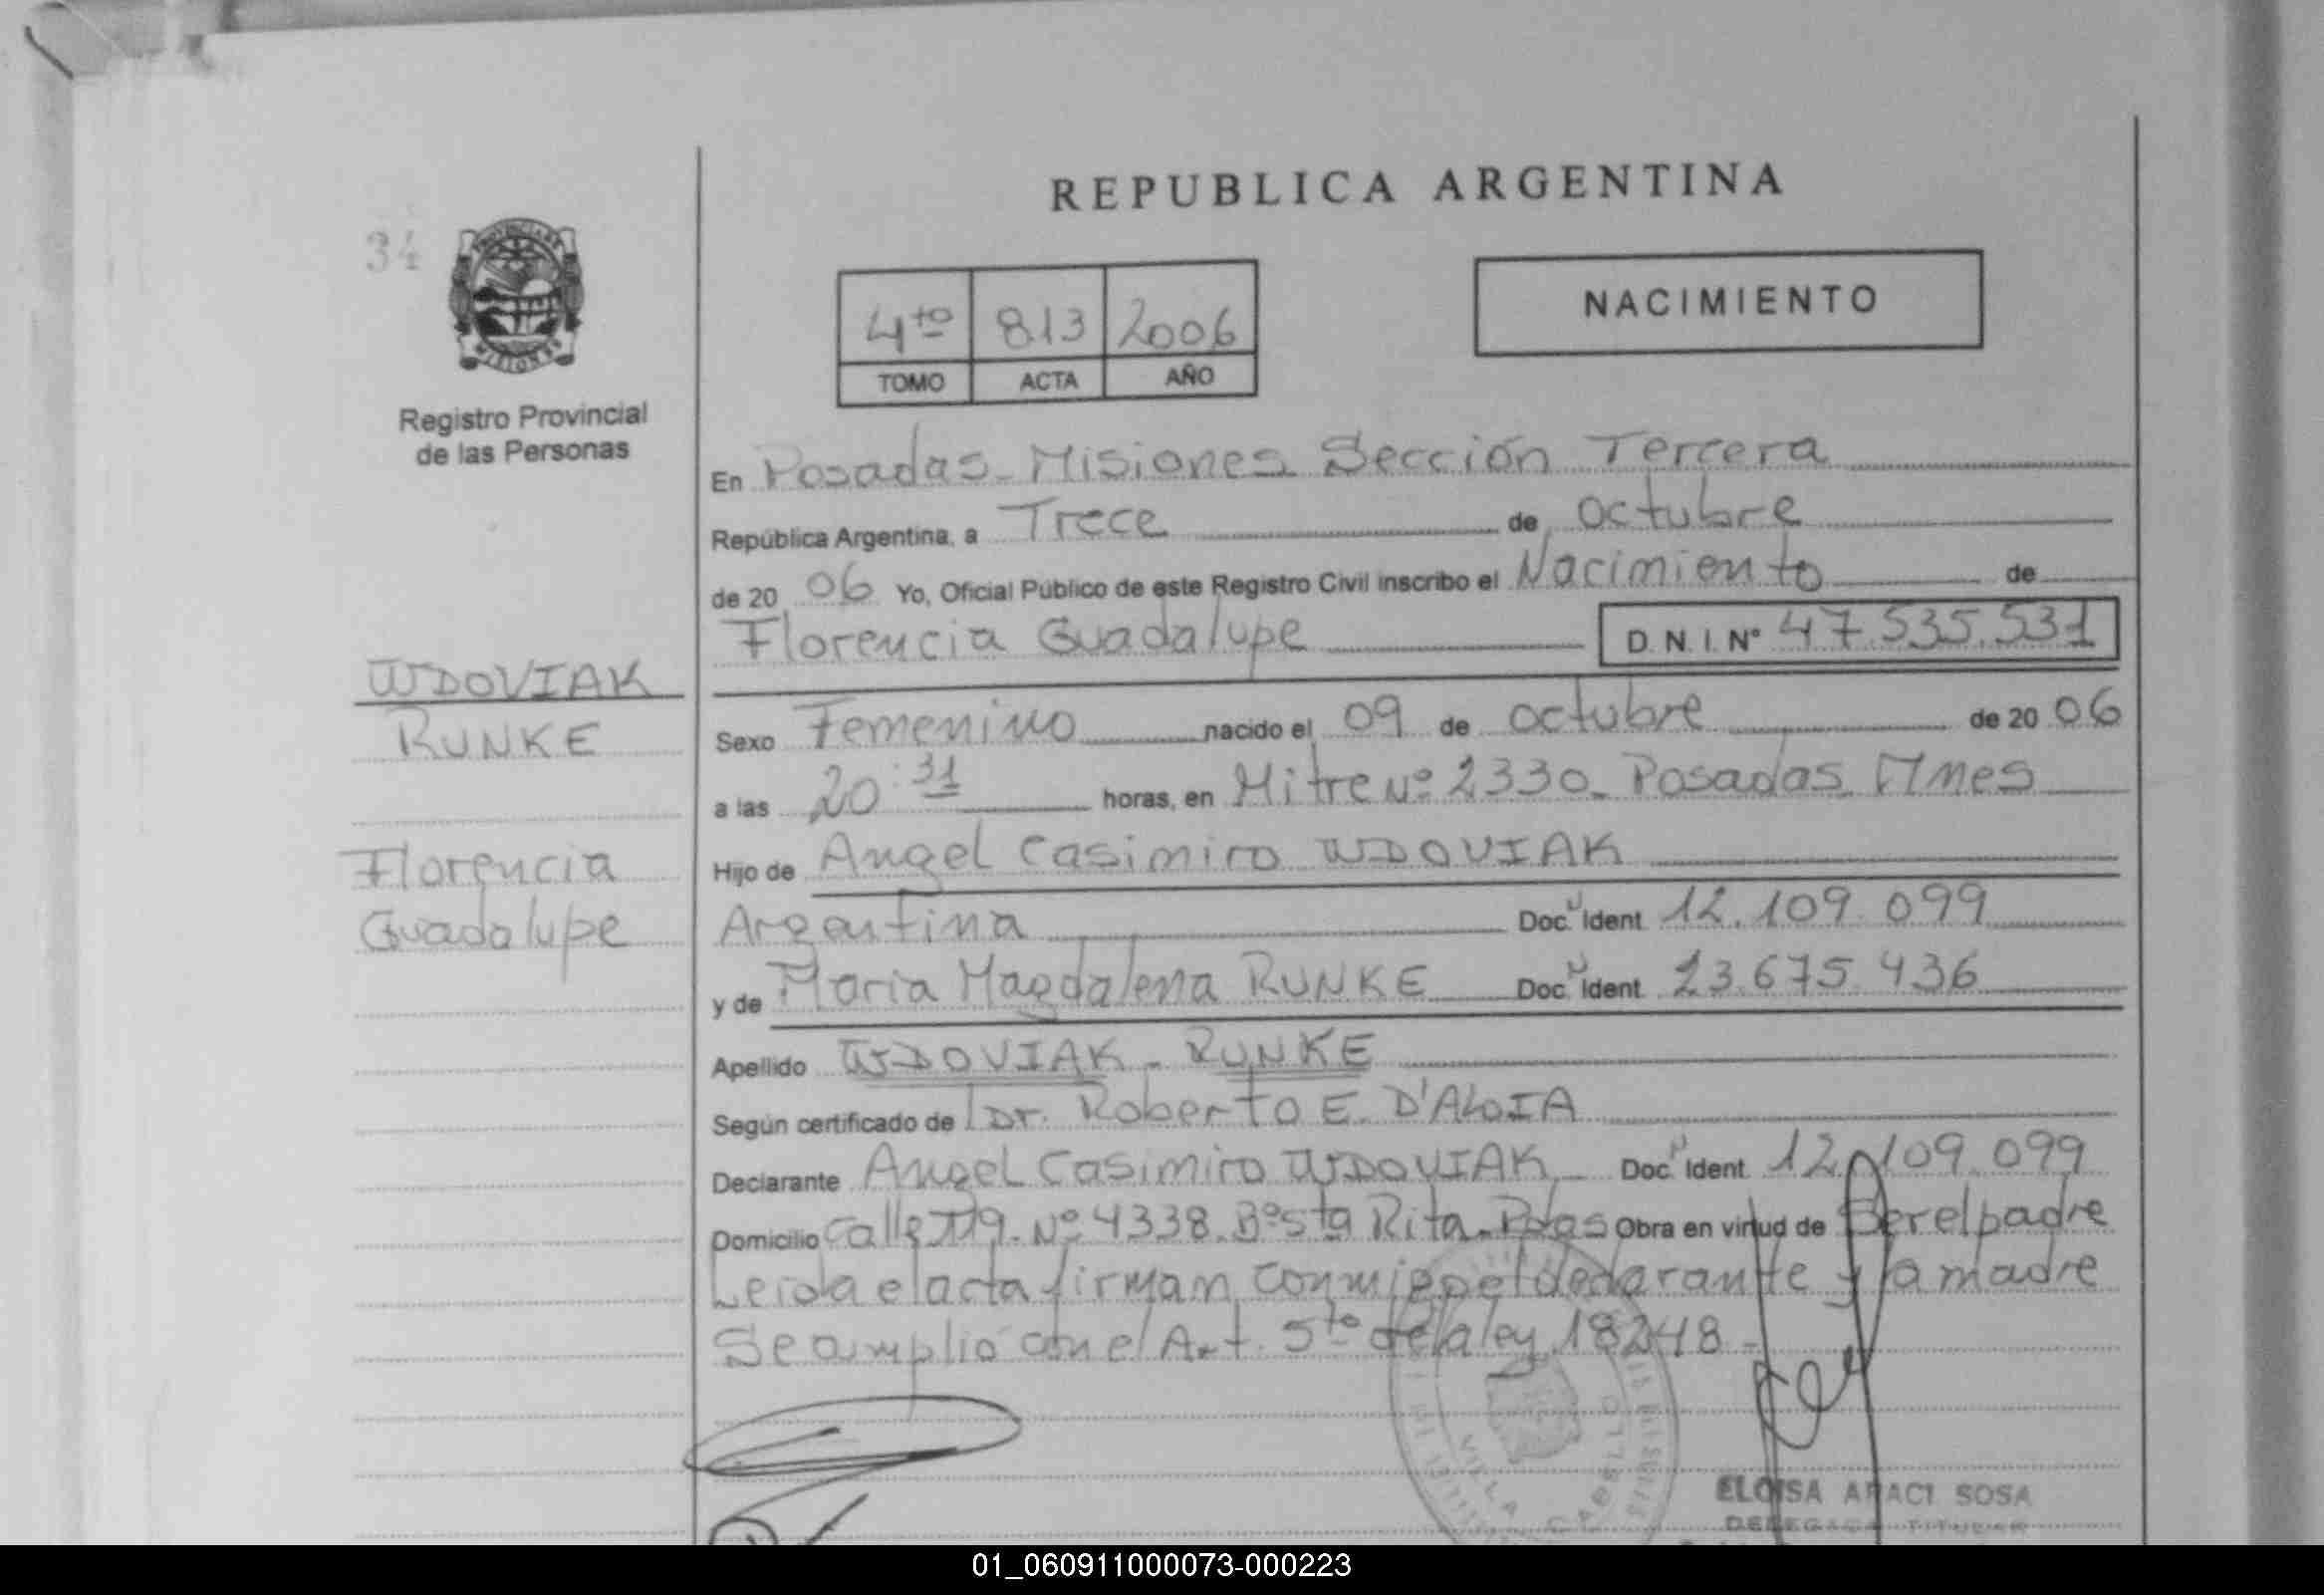 REPUBLICA ARGENTINA
34
PROVINCIA DE
MISIONES
Registro Provincial
de las Personas
4to 813 2006
TOMO ACTA AÑO
NACIMIENTO
En Posadas - Misiones Sección Tercera
República Argentina, a Trece de octubre
de 20 06 Yo, Oficial Público de este Registro Civil inscribo el Nacimiento de
Florencia Guadalupe D.N.I. Nº 47.535.531
WDOVIAK
RUNKE
Florencia
Guadalupe
Sexo Femenino nacido el 09 de octubre de 20 06
a las 20:31 horas, en Mitre Nº 2330 - Posadas Mnes
Hijo de Angel Casimiro WDOVIAK
Argentina Doc. Ident. 12.109.099
y de Maria Magdalena RUNKE Doc. Ident. 23.675.436
Apellido WDOVIAK - RUNKE
Según certificado de Dr. Roberto E. D'ALOIA
Declarante Angel Casimiro WDOVIAK - Doc. Ident. 12.109.099
Domicilio calle 119. Nº 4338. Bº Sta Rita - Pdas Obra en virtud de Ser el padre
Leida el acta firman conmigo el declarante y la madre
Se amplio con el Art. 5to de la ley 18248 -
VILLA CABELLO
ELOISA ARACI SOSA
DELEGADA TITULAR
01_060911000073-000223